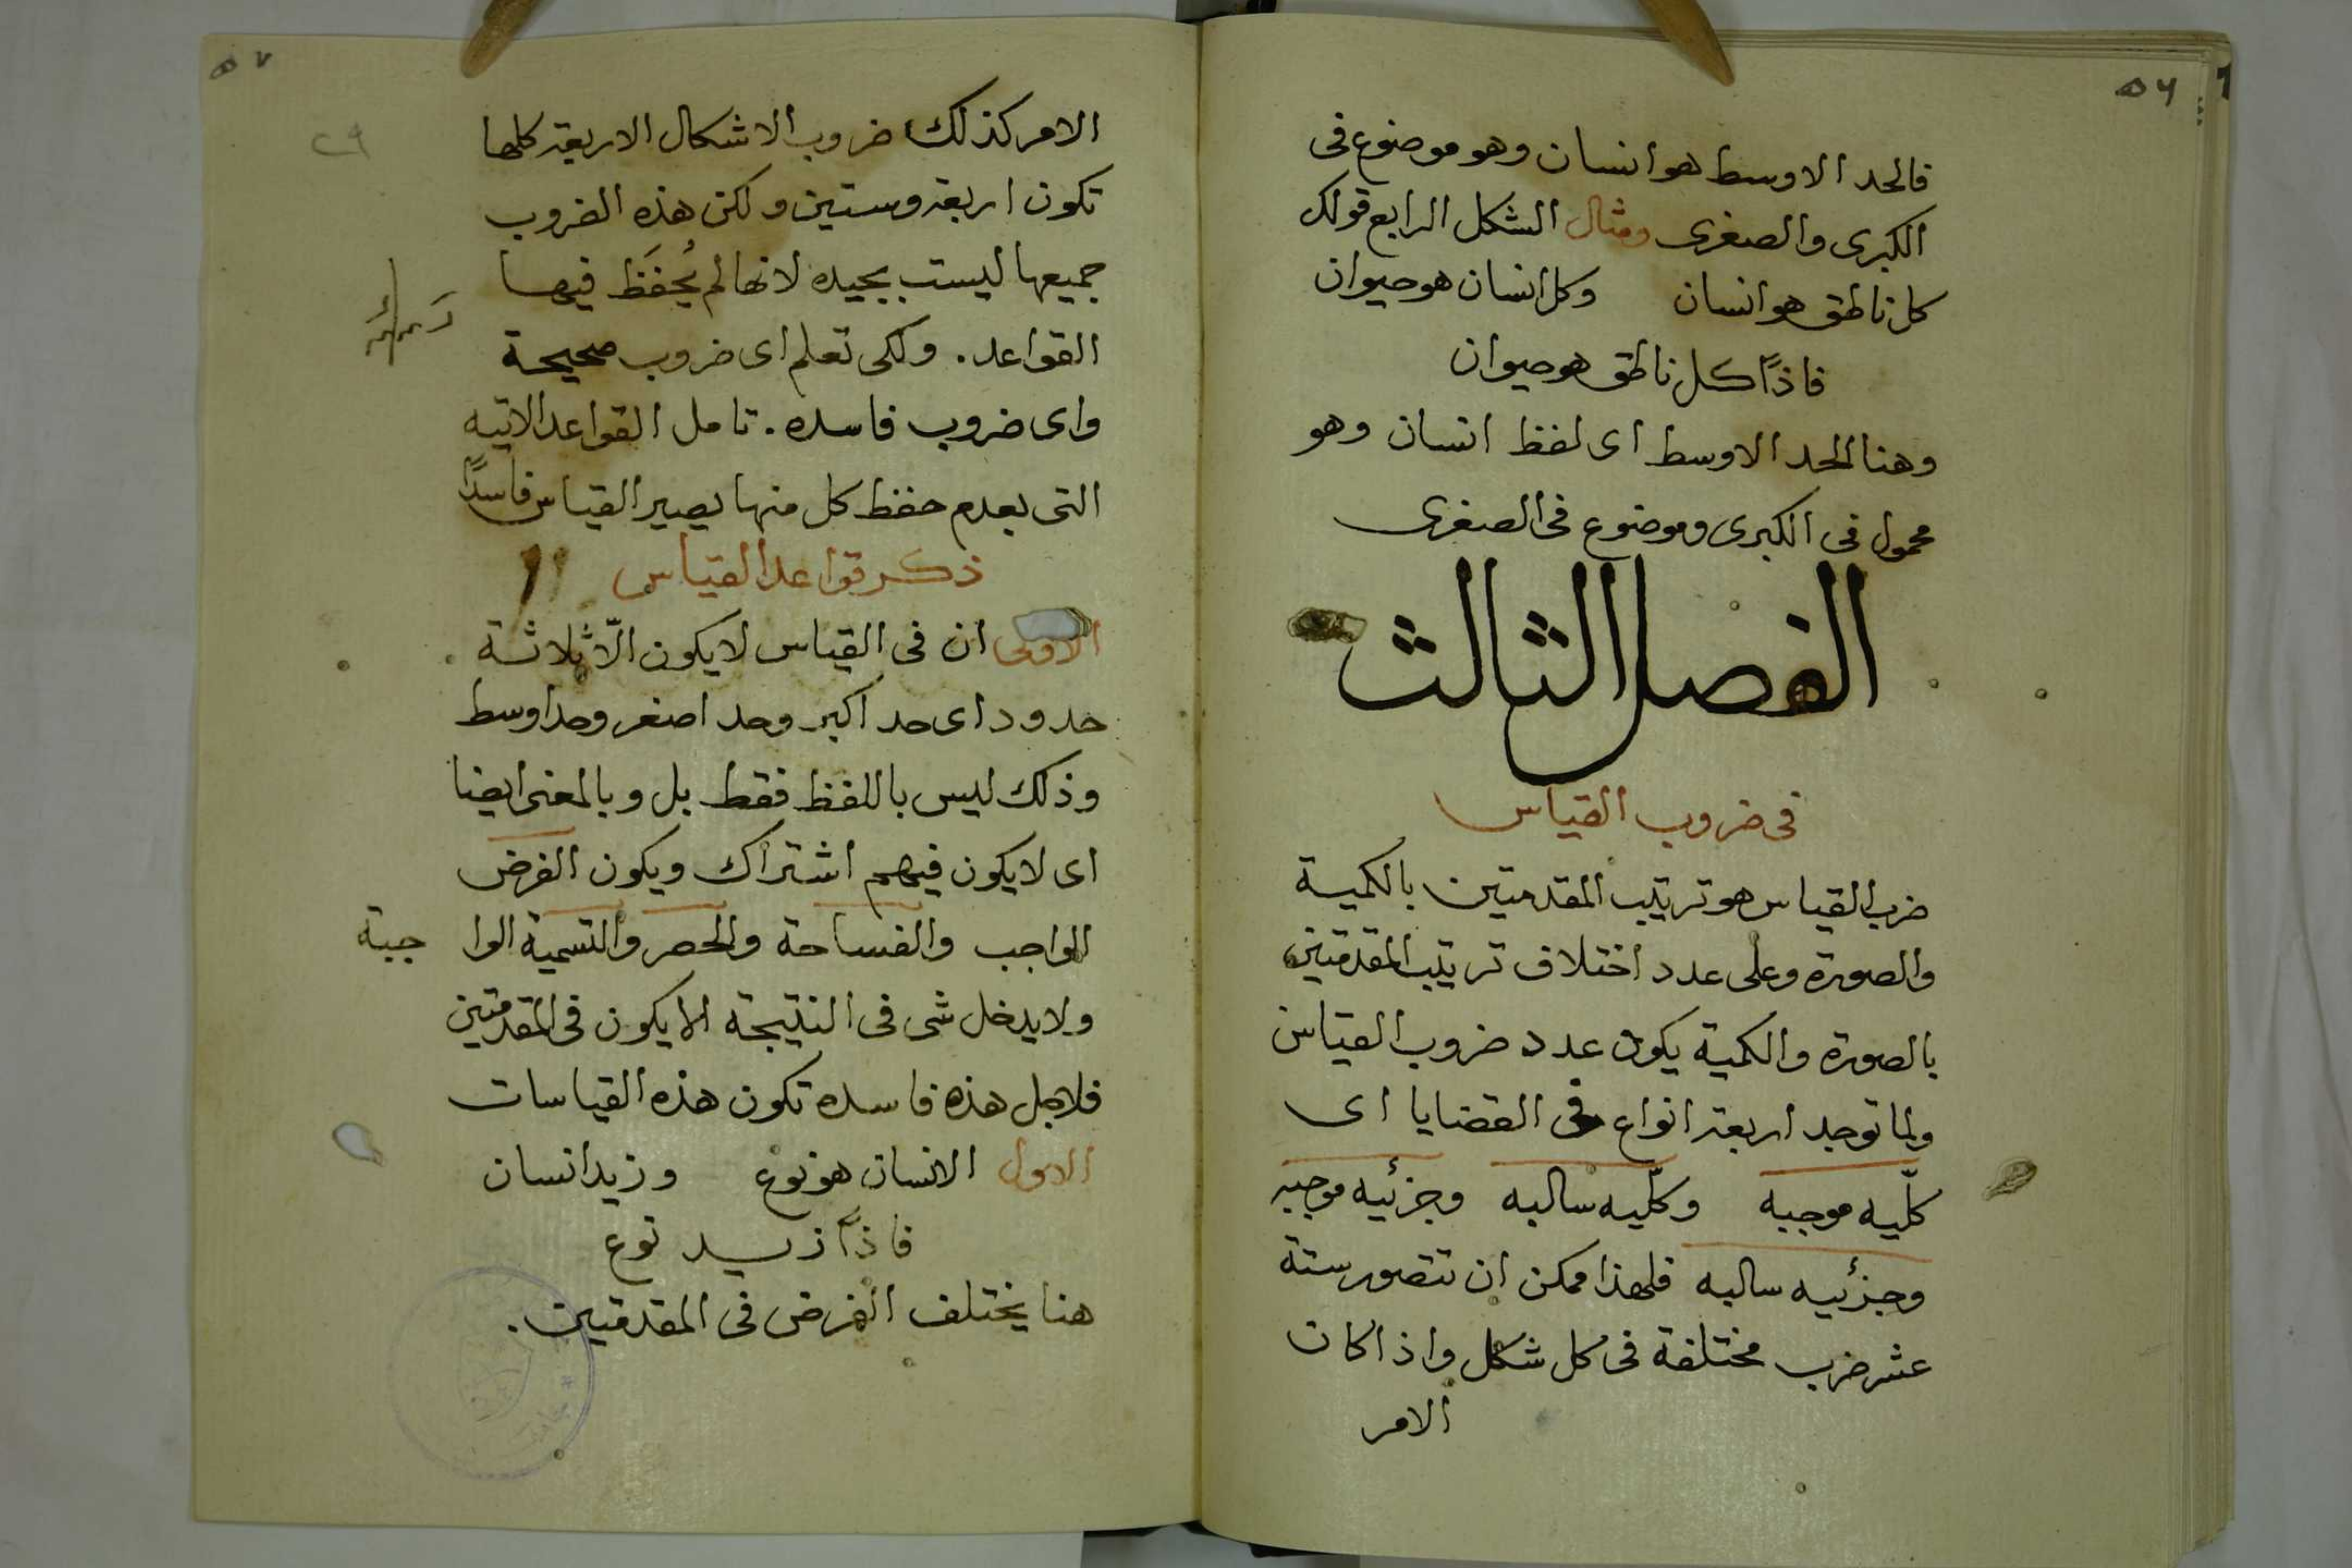 ٥٦
فالحد الاوسط هو انسان وهو موضوع فى
الكبرى والصغرى ومثال الشكل الرابع قولك
كل ناطق هو انسان وكل انسان هو حيوان
فاذًا كل ناطق هو حيوان
وهنا الحد الاوسط اى لفظ انسان وهو
محمول فى الكبرى وموضوع فى الصغرى
الفصل الثالث
فى ضروب القياس
ضرب القياس هو ترتيب المقدمتين بالكمية
والصورة وعلى عدد اختلاف ترتيب المقدمتين
بالصورة والكمية يكون عدد ضروب القياس
ولما توجد اربعة انواع فى القضايا اى
كلّيه موجبه وكلّيه سالبه وجزئيه موجبه
وجزئيه سالبه فلهذا ممكن ان تتصور ستة
عشر ضرب مختلفة فى كل شكل واذا كان
الامر
٥٧
٢٩
الامر كذلك ضروب الاشكال الاربعة كلها
تكون اربعة وستين ولكن هذه الضروب
جميعها ليست بجيده لانها لم يُحفَظ فيها
القواعد. ولكى تعلم اى ضروب صحيحة
واى ضروب فاسده. تامل القواعد الاتيه
التى بعدم حفظ كل منها يصير القياس فاسدًا
ذكر قواعد القياس
الاولى ان فى القياس لا يكون الّا ثلاثة
حدود اى حد اكبر وحد اصغر وحد اوسط
وذلك ليس باللفظ فقط بل وبالمعنى ايضا
اى لا يكون فيهم اشتراك ويكون الفرض
الواجب والفساحة والحصر والتسمية الوا جبة
ولا يدخل شى فى النتيجة الا يكون فى المقدمتين
فلاجل هذه فاسده تكون هذه القياسات
الاول الانسان هو نوع وزيد انسان
فاذًا زيد نوع
هنا يختلف الفرض فى المقدمتين.